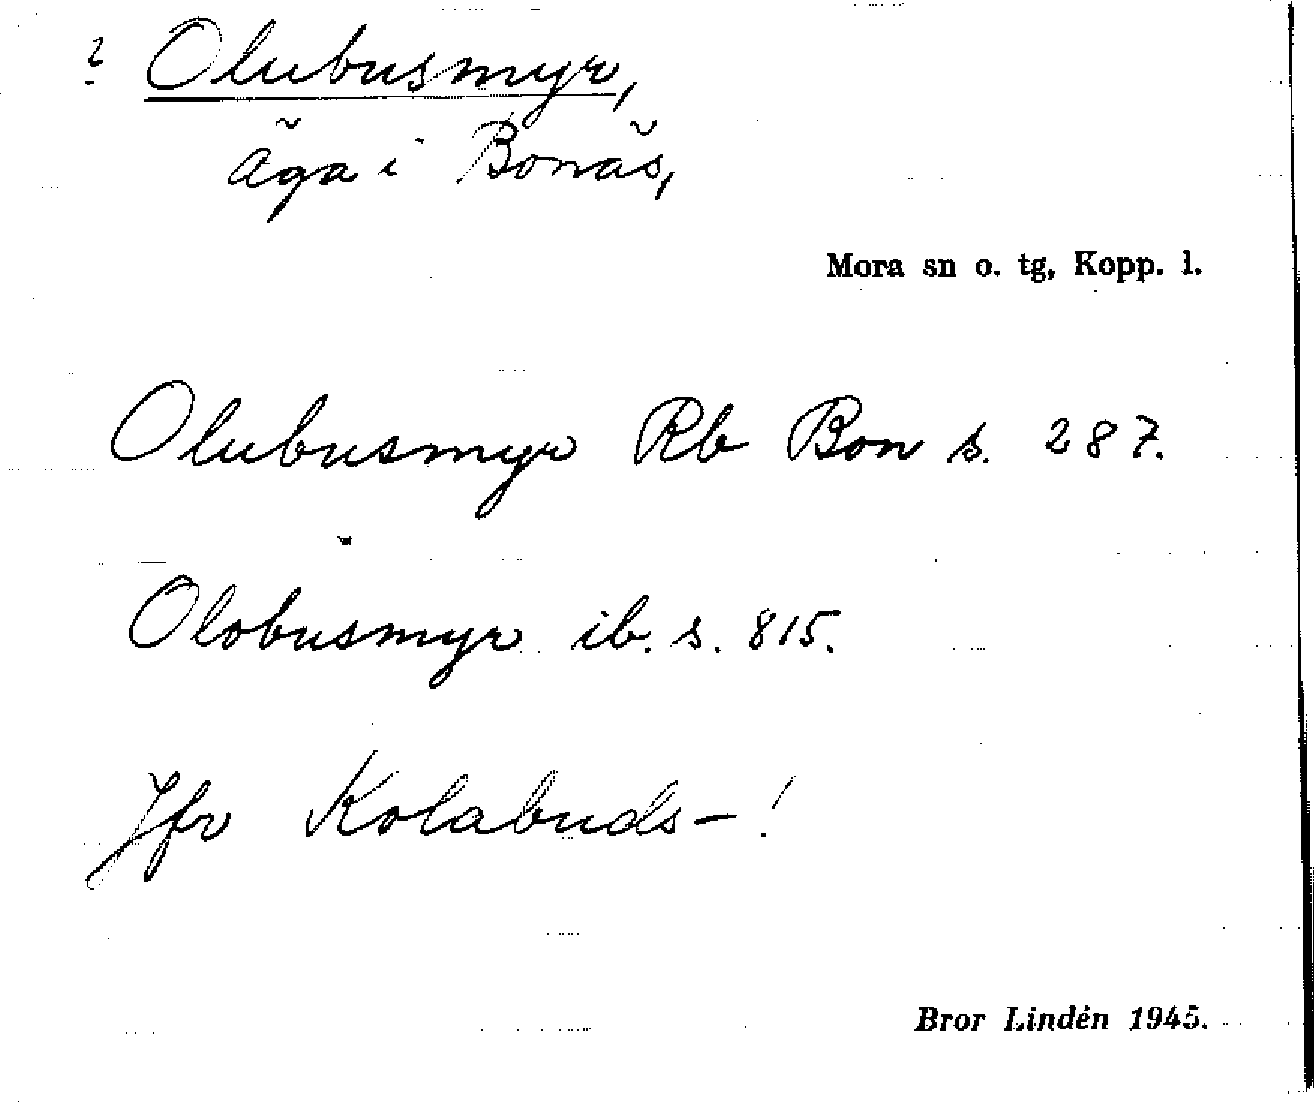 ? Olubusmyr,
äga i Bonäs,
Mora sn o. tg, Kopp. l.
Olubusmyr Rb Bon s. 287.
Olobusmyr ib. s. 815.
Jfr Kolabuds-!
Bror Lindén 1945.